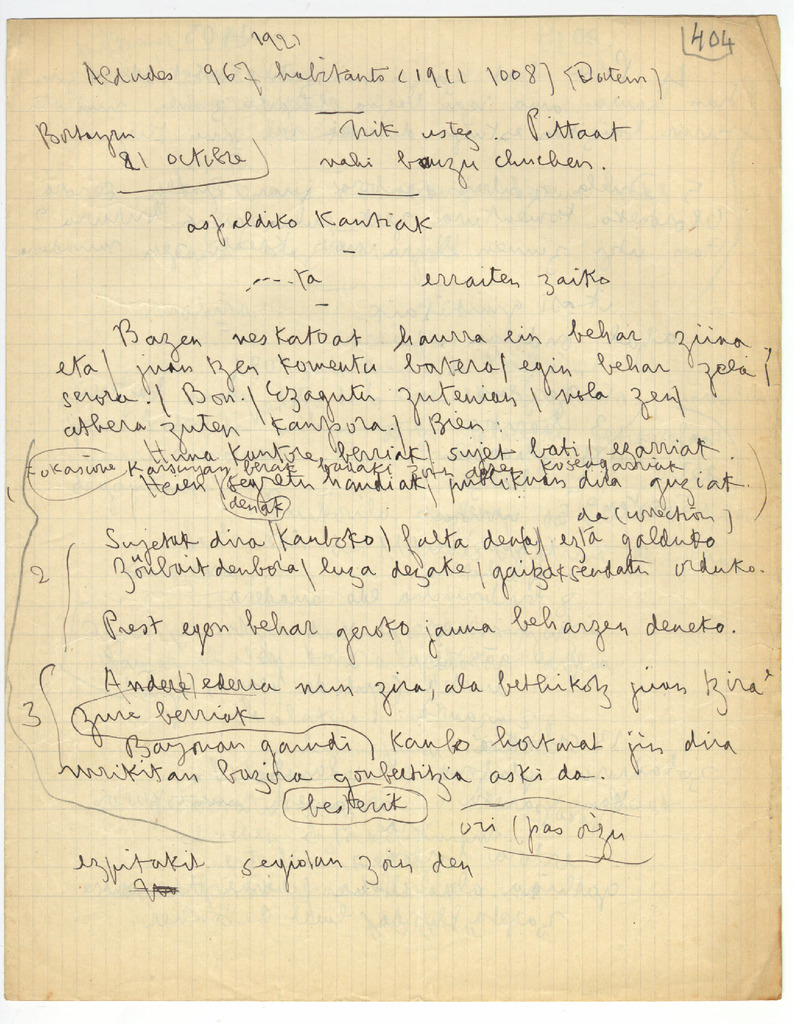 404
1921
Aldudes 967 habitants (1911 1008) (Datem)
Nik ustez. Pittaat
21 octobre) nahi bauzu chuchen.
aspaldiko Kantiak
----ta erraiten zaiko
Bazen neskatoat haurra ein behar züina,
eta / juan tzen komentu batera / egin behar zela /
serora. / Bon. / Ezagutu zutenian / nola zen /
athera zuten kanpora. / Bien:
Huna kantore berriak / sujet bati / ezarriak.
okasione berak badaki zoin den
Heien / segretu handiak / publikuan dira guziak.
denak
da (correction)
2 Sujetak dira / Kanboko / falta dena / ezta galduko
Zönbait denbora / luza dezake / gaitzak sendatu orduko.
Prest egon behar geroko jauna beharzen deneko.
3 Andere / ederra nun zira, ala bethikotz juan tzira
zure berriak
Bayonan garudi) Kanbo hortarat jin dira
urrikitan bazira gonbertitzia aski da.
besterik
ori (pas oizu
ezpitakit segidan zoin den